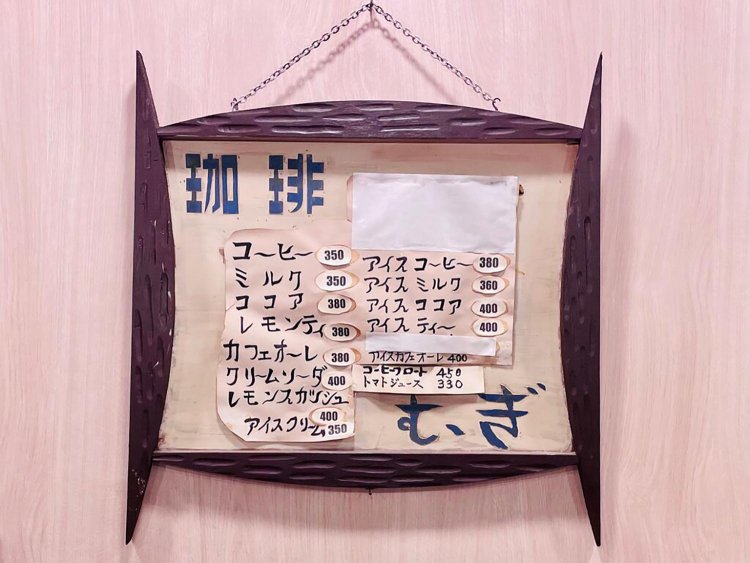 珈琲
コーヒー 350
ミルク 350
ココア 380
レモンティ 380
カフェオーレ 380
クリームソーダ 400
レモンスカッシュ 400
アイスクリーム 350
アイスコーヒー 380
アイスミルク 360
アイスココア 400
アイスティー 400
アイスカフェオーレ 400
コーヒーフロート 450
トマトジュース 330
むぎ